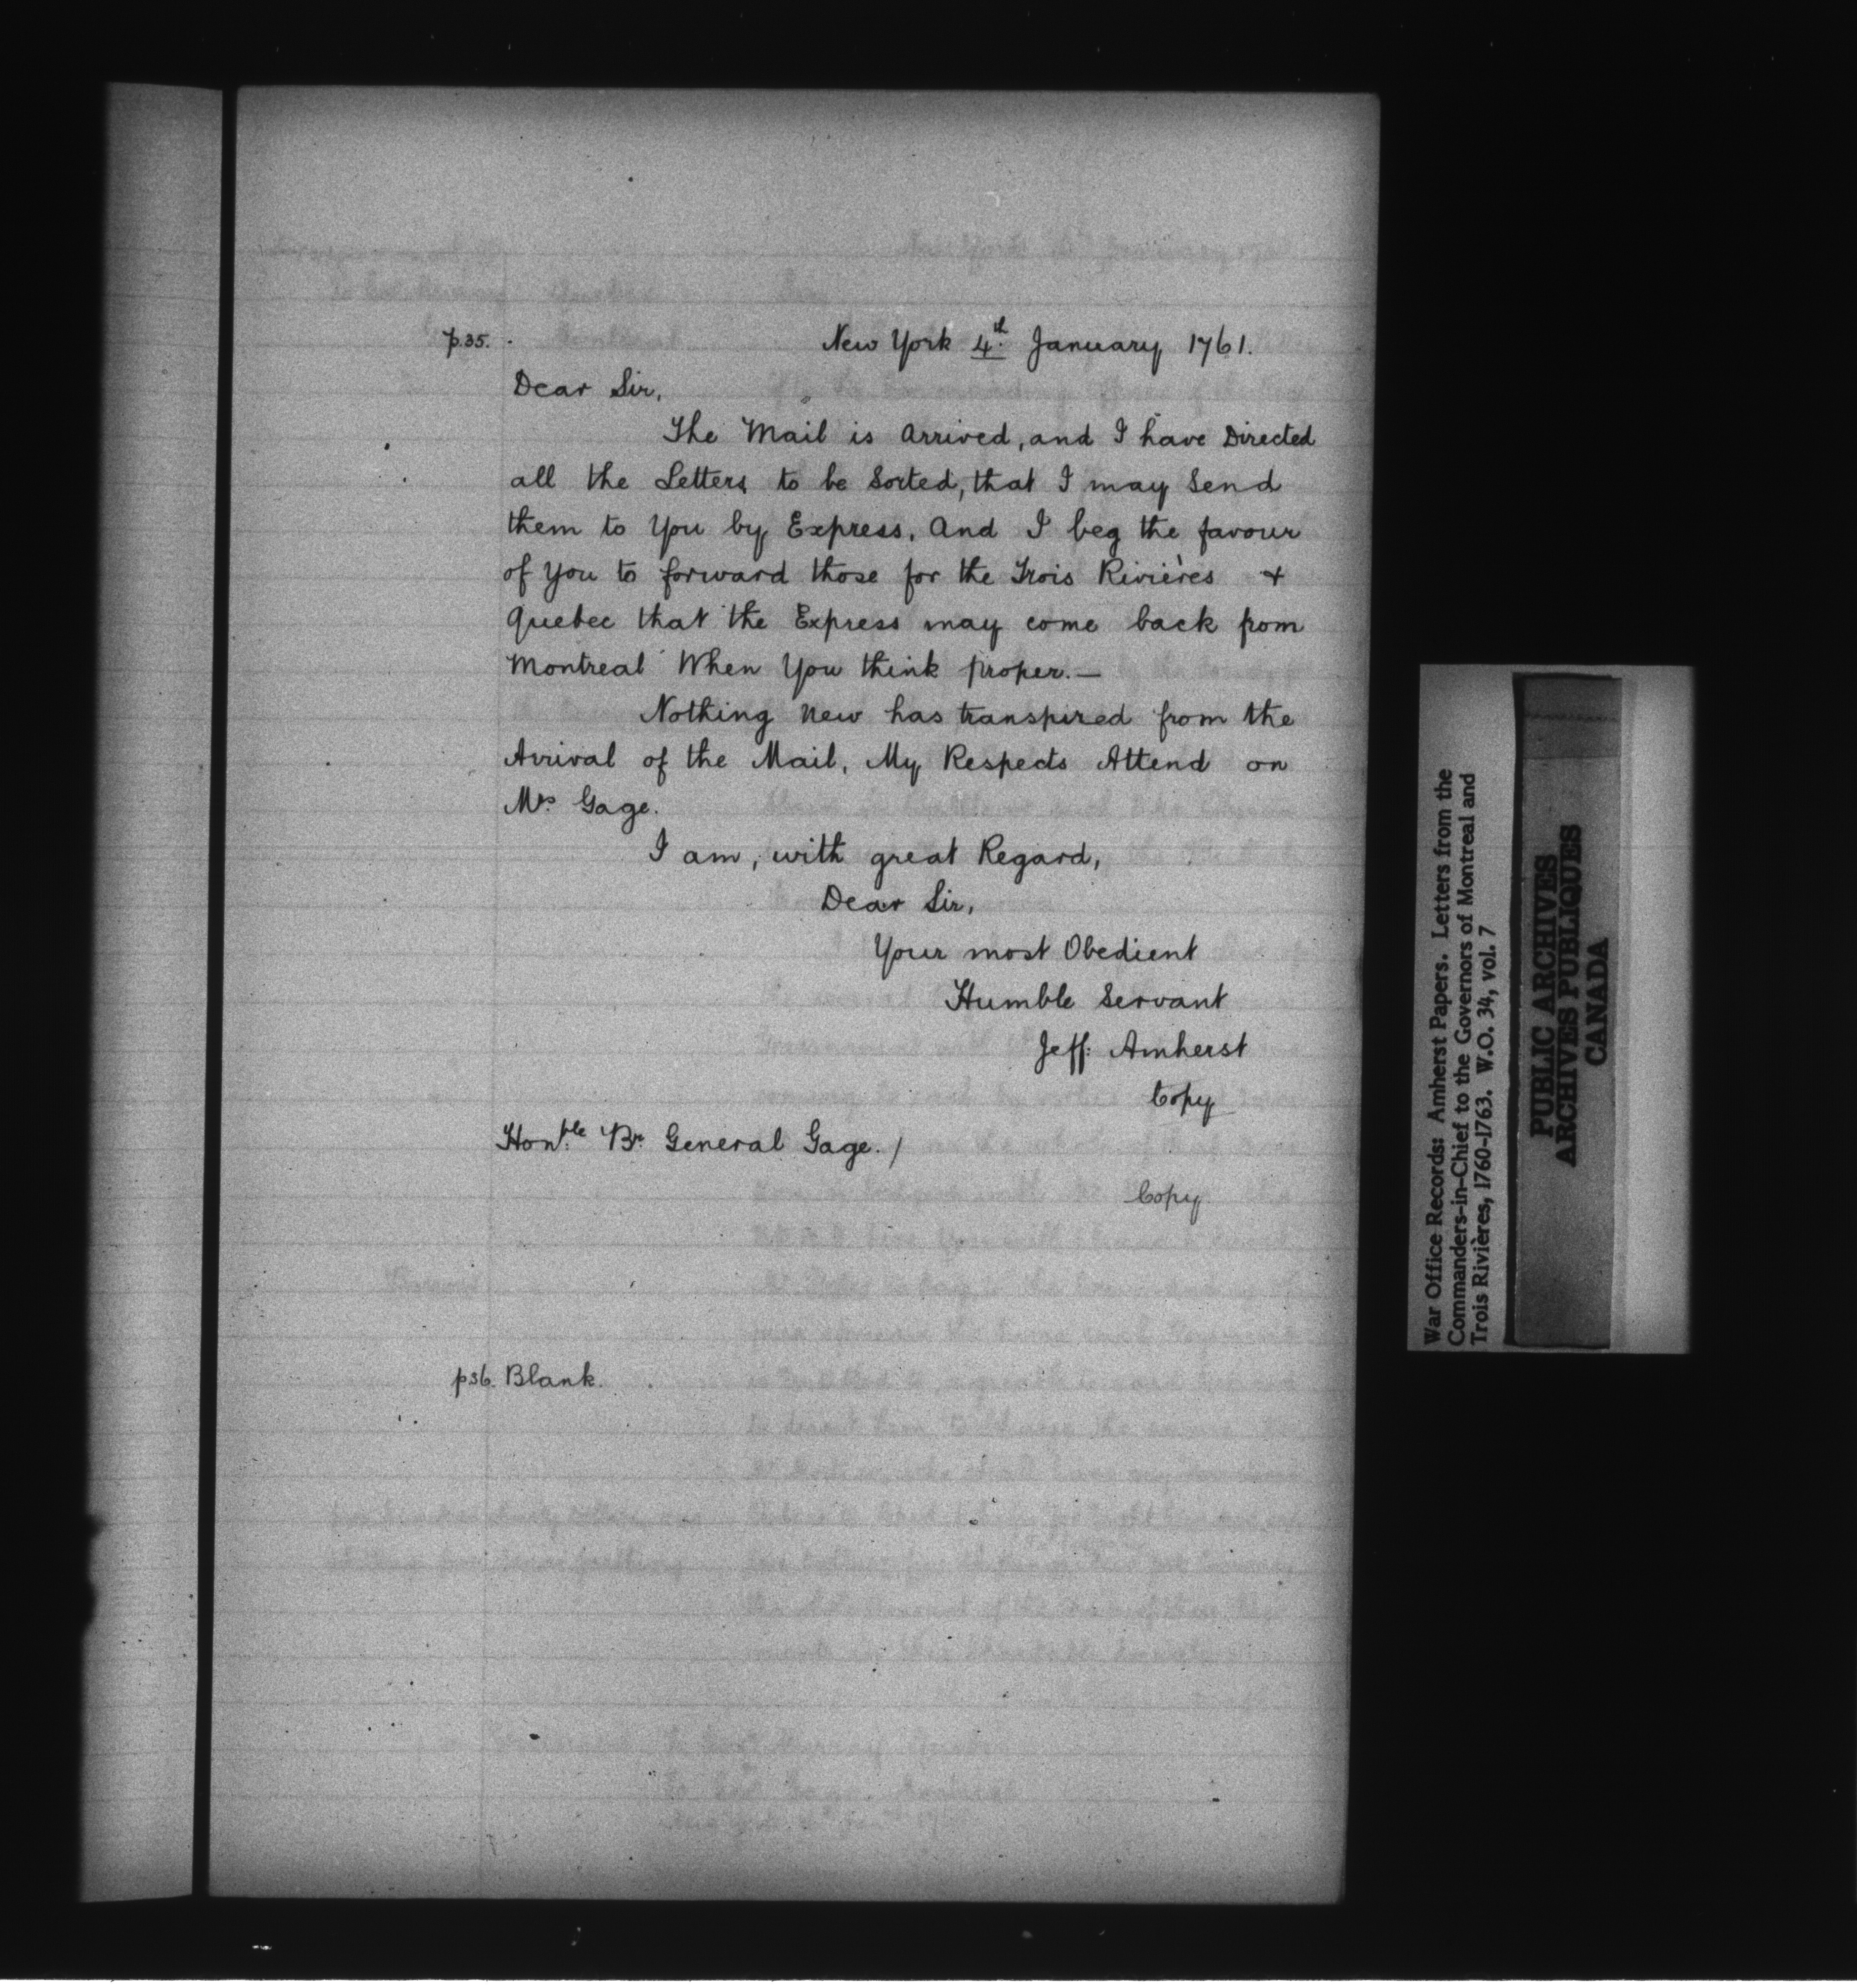 p.35. New York 4th January 1761.
Dear Sir,
The Mail is Arrived, and I have Directed
all the Letters to be Sorted, that I may Send
them to You by Express, And I beg the favour
of You to forward those for the Trois Rivières &
Quebec that the Express may come back from
Montreal When You think proper.—
Nothing New has transpired from the
Arrival of the Mail, My Respects Attend on
Mrs. Gage.
I am, with great Regard,
Dear Sir,
Your most Obedient
Humble Servant
Jeff: Amherst
Copy
Honble. Br. General Gage. /
Copy
p36. Blank.
War Office Records: Amherst Papers. Letters from the
Commanders-in-Chief to the Governors of Montreal and
Trois Rivières, 1760-1763. W.O. 34, vol. 7
PUBLIC ARCHIVES
ARCHIVES PUBLIQUES
CANADA